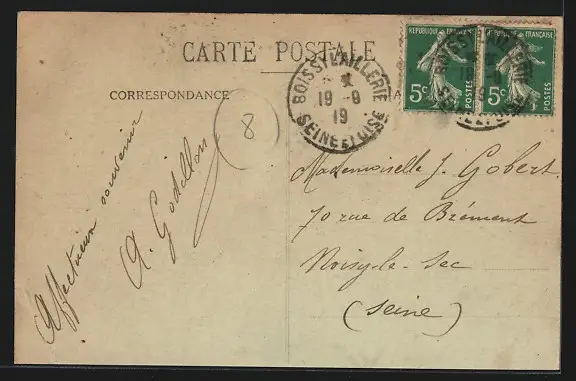 CARTE POSTALE
CORRESPONDANCE
8
Affectueux souvenir
A. Godillon
BOISSY L'AILLERIE
19 - 9
19
SEINE ET OISE
REPUBLIQUE FRANÇAISE
5c POSTES
REPUBLIQUE FRANÇAISE
5c POSTES
Mademoiselle J. Gobert
70 rue de Brément
Noisy-le-Sec
(Seine)